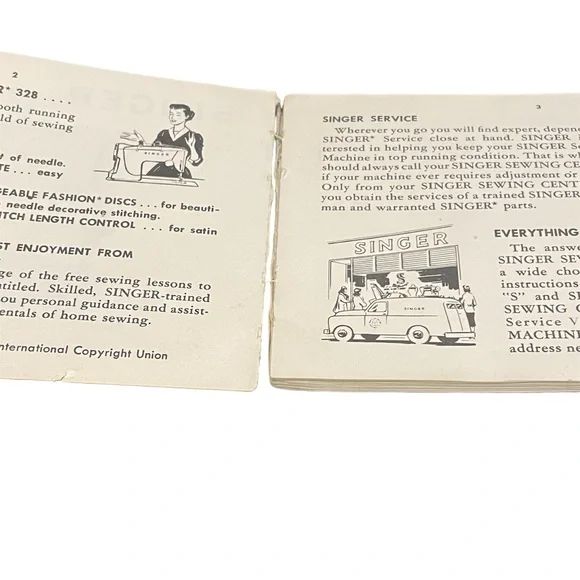 2
R* 328 ....
ooth running
ld of sewing
SINGER
t of needle.
TE ... easy
GEABLE FASHION* DISCS ... for beauti-
needle decorative stitching.
TCH LENGTH CONTROL ... for satin
ST ENJOYMENT FROM
ge of the free sewing lessons to
ntitled. Skilled, SINGER-trained
ou personal guidance and assist-
entals of home sewing.
nternational Copyright Union
3
SINGER SERVICE
Wherever you go you will find expert, depen
SINGER* Service close at hand. SINGER
terested in helping you keep your SINGER Se
Machine in top running condition. That is wh
should always call your SINGER SEWING CE
if your machine ever requires adjustment or
Only from your SINGER SEWING CENT
you obtain the services of a trained SINGER
man and warranted SINGER* parts.
SINGER
S
SINGER
EVERYTHING
The answe
SINGER SEW
a wide cho
instructions
"S" and SI
SEWING C
Service V
MACHINE
address ne